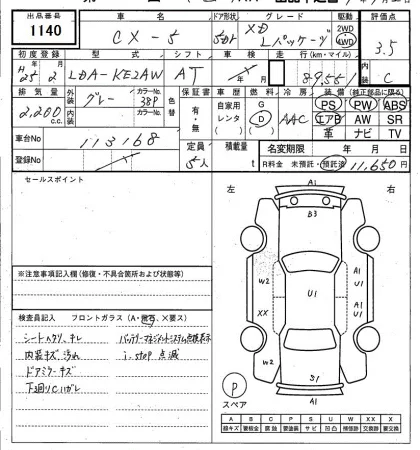 出品番号 車名 ドア形状 グレード 駆動 評価点
1140 CX-5 5DR XD Lパッケージ 2WD 4WD 3.5
初度登録 型式 シフト 車検 走行(km・マイル) 内装
H25年2月 LDA-KE2AW AT 年 月 89,551 C
排気量 外装色 カラーNo. 色替 保証書 車歴 燃料 冷房 装備(純正部品に限る)
2,200 c.c. グレー 38P 有・無 自家用 レンタ ( ) G D ( ) AAC PS PW ABS
エアB AW SR
革 ナビ TV
車台No 113168 定員 5人 積載量 t 名変期限 年 月 日
登録No R料金 未預託・預託済 11,650円
セールスポイント
左 右
A1
B3
W2 A1 U1
U1
XX A1 U1
W2
S1
A1
P
スペア
※注意事項記入欄(修復・不具合箇所および状態等)
検査員記入 フロントガラス(A・飛石、×要ス)
シートヘタリ、キレ バッテリーマネジメントシステム点検表示
内装キズ汚れ i-stop点滅
ドアミラーキズ
下廻りCハガレ
A B C P S U W X XX
線キズ 要板金 腐蝕 要塗装 サビ 凹凸 補修跡 交換跡 要交換